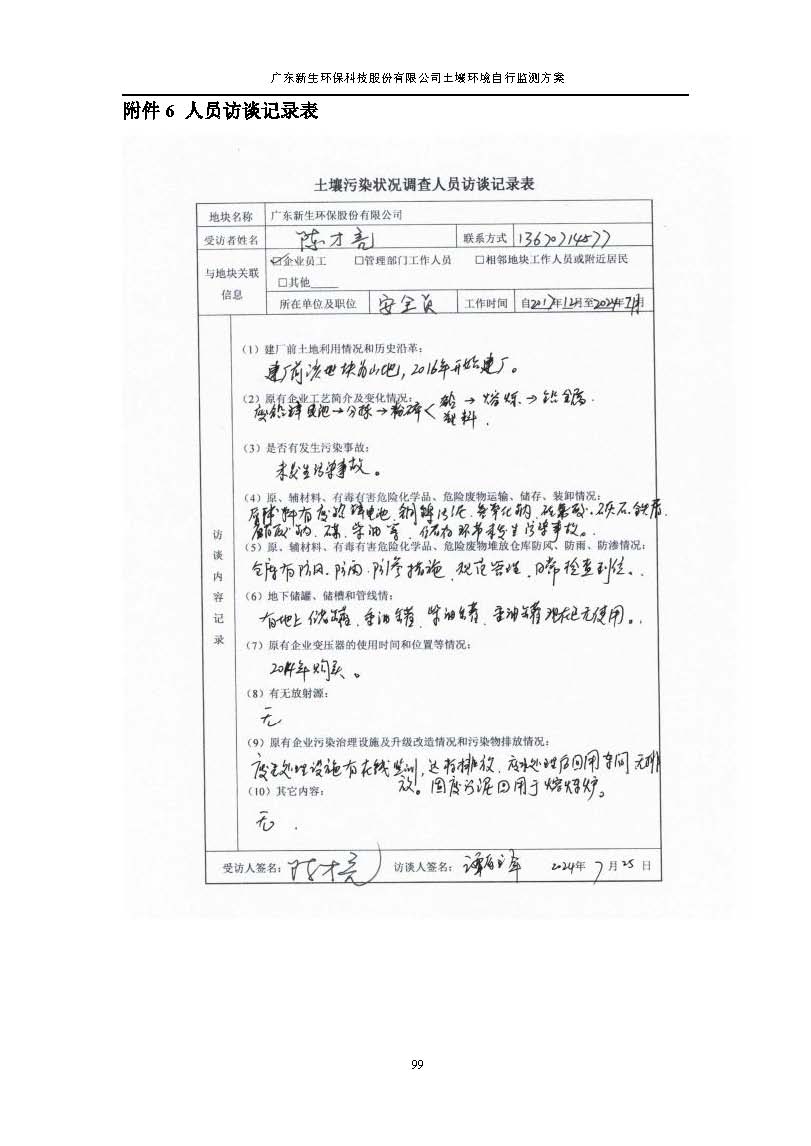 广东新生环保科技股份有限公司土壤环境自行监测方案
附件 6 人员访谈记录表
土壤污染状况调查人员访谈记录表
地块名称 广东新生环保股份有限公司
受访者姓名 陈才亮 联系方式
与地块关联信息 ☑企业员工 □管理部门工作人员 □相邻地块工作人员或附近居民
□其他____
所在单位及职位 安全员 工作时间 自2017年12月至2024年7月
访谈内容记录
（1）建厂前土地利用情况和历史沿革：
建厂前该地块为山地，2016年开始建厂。
（2）原有企业工艺简介及变化情况：
废铅蓄电池→分拣→粉碎<铅→熔炼→铅金属.
塑料.
（3）是否有发生污染事故：
未发生污染事故。
（4）原、辅材料、有毒有害危险化学品、危险废物运输、储存、装卸情况：
有废铅蓄电池、
煤、柴油等，储存环节未发生污染事故。
（5）原、辅材料、有毒有害危险化学品、危险废物堆放仓库防风、防雨、防渗情况：
仓库有防风、防雨、防渗措施，规范管理，日常检查到位。
（6）地下储罐、储槽和管线情：
有地上储罐，重油罐、柴油罐，重油罐现在已无使用。
（7）原有企业变压器的使用时间和位置等情况：
购买。
（8）有无放射源：
无
（9）原有企业污染治理设施及升级改造情况和污染物排放情况：
废气处理设施有在线监测，达标排放，废水处理后回用车间无排
放。固废污泥回用于熔炼炉。
（10）其它内容：
无.
受访人签名：陈才亮 访谈人签名： 2024年7月25日
99